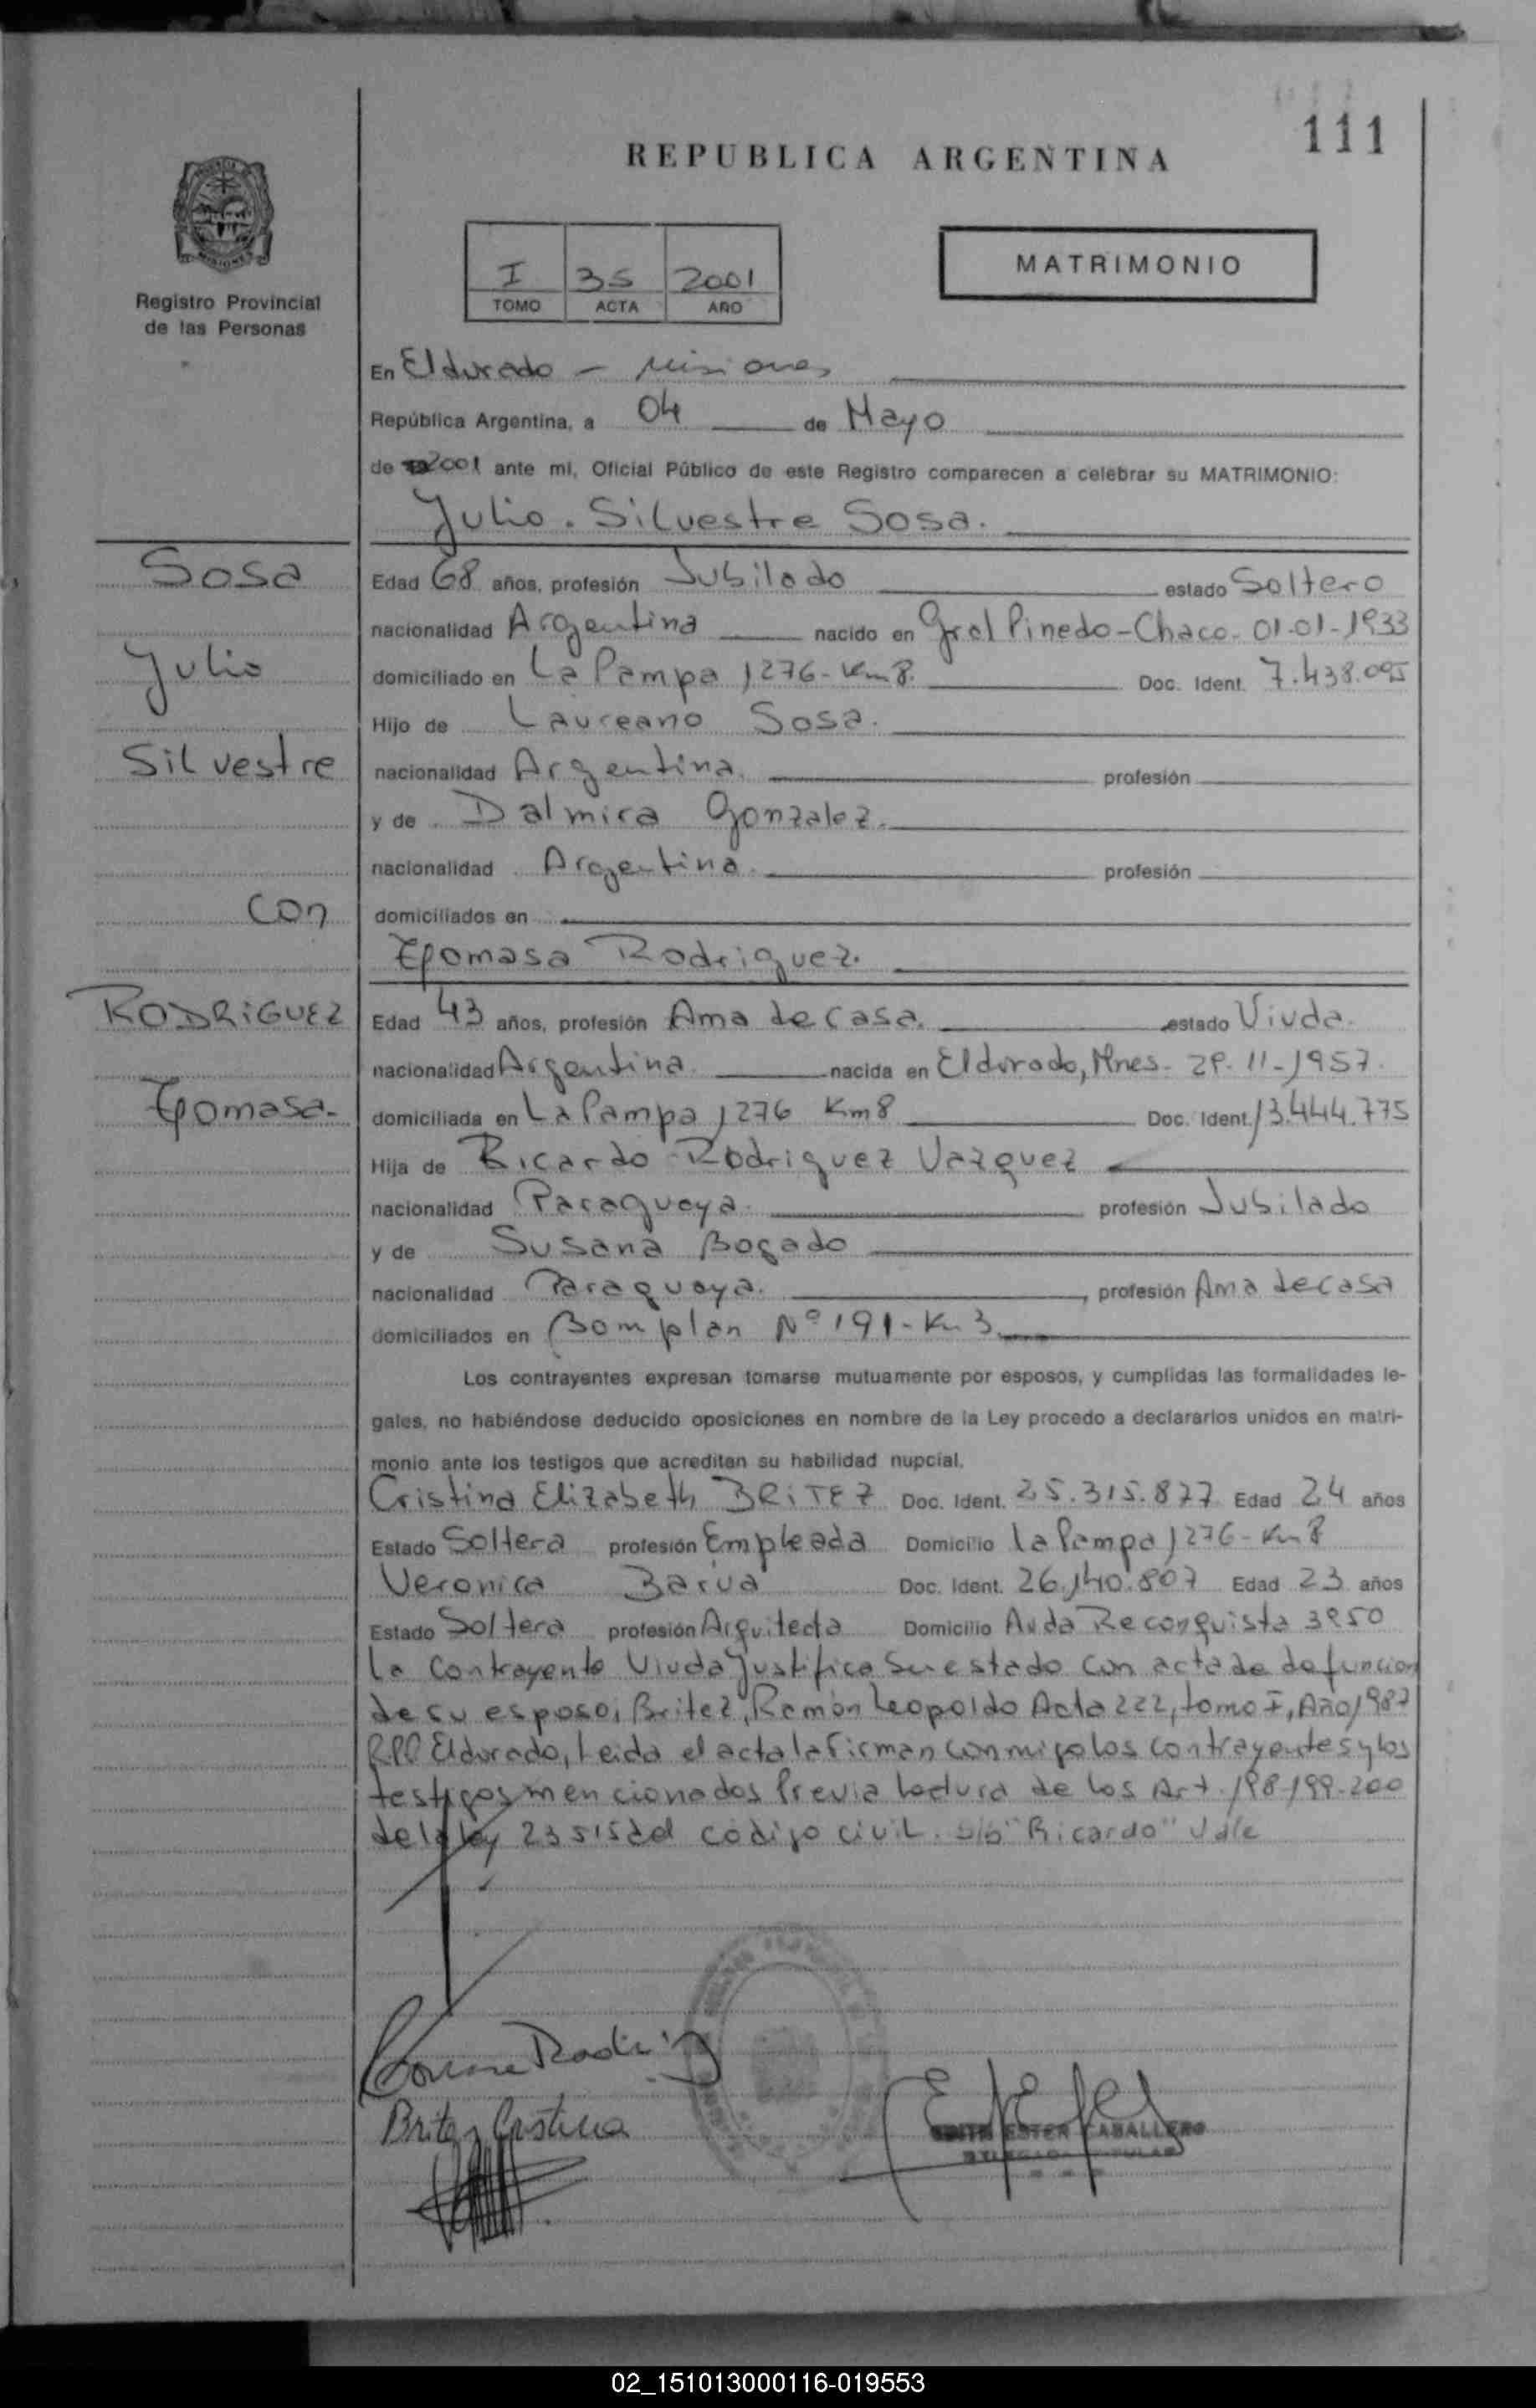 111
REPUBLICA ARGENTINA
I 35 2001
TOMO ACTA AÑO
MATRIMONIO
Registro Provincial
de las Personas
En Eldorado - Misiones
República Argentina, a 04 de Mayo
de 2001 ante mi, Oficial Público de este Registro comparecen a celebrar su MATRIMONIO:
Julio. Silvestre Sosa.
Sosa
Julio
Silvestre
con
RODRiGUEZ
Edad 68 años, profesión Jubilado estado Soltero
nacionalidad Argentina nacido en Gral Pinedo-Chaco- 01-01-1933
domiciliado en La Pampa 1276-Km8. Doc. Ident. 7.438.095
Hijo de Laureano Sosa.
nacionalidad Argentina. profesión
y de Dalmira Gonzalez.
nacionalidad Argentina. profesión
domiciliados en
Rodriguez.
Edad 43 años, profesión Ama de casa. estado Viuda.
nacionalidad Argentina. nacida en Eldorado, Mnes- 29-11-1957.
domiciliada en La Pampa 1276 Km8 Doc. Ident. 13.444.775
Hija de Ricardo Rodriguez Vazquez
nacionalidad Paraguaya. profesión Jubilado
y de Susana Bogado
nacionalidad Paraguaya. profesión Ama de casa
domiciliados en Bomplan Nº 191-Km 3
Los contrayentes expresan tomarse mutuamente por esposos, y cumplidas las formalidades le-
gales, no habiéndose deducido oposiciones en nombre de la Ley procedo a declararlos unidos en matri-
monio ante los testigos que acreditan su habilidad nupcial.
Cristina Elizabeth BRiTEZ Doc. Ident. 25.315.877 Edad 24 años
Estado Soltera profesión Empleada Domicilio la Pampa 1276-Km8
Veronica Barua Doc. Ident. 26.140.807 Edad 23 años
Estado Soltera profesión Arquitecta Domicilio Avda Reconquista 3950
La Contrayente Viuda Justifica Su estado con acta de defuncion
de su esposo, Britez, Ramón Leopoldo Acta 222, tomo I, Año 1987
R.P.P Eldorado, Leida el acta la Firman conmigo los contrayentes y los
testigos mencionados Previa lectura de los Art. 198-199-200
de la ley 23515 del codigo civil. s/b "Ricardo" Vale
Britez Cristina
EDITH ESTER CABALLERO
02_151013000116-019553